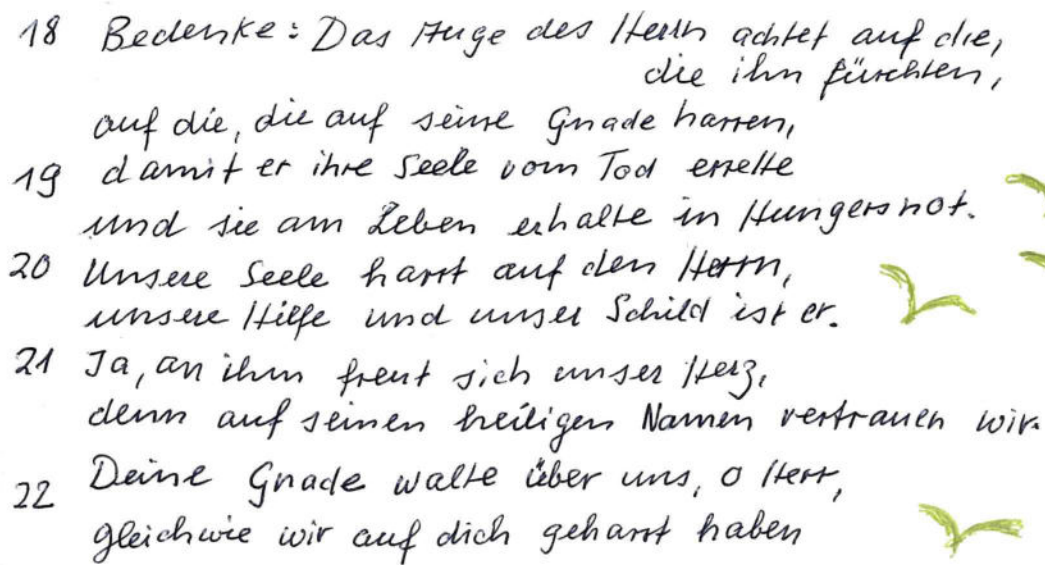 18 Bedenke: Das Auge des Herrn achtet auf die,
die ihn fürchten,
auf die, die auf seine Gnade harren,
19 damit er ihre Seele vom Tod errette
und sie am Leben erhalte in Hungersnot.
20 Unsere Seele harrt auf den Herrn,
unsere Hilfe und unser Schild ist er.
21 Ja, an ihm freut sich unser Herz,
denn auf seinen heiligen Namen vertrauen wir.
22 Deine Gnade walte über uns, o Herr,
gleichwie wir auf dich geharrt haben